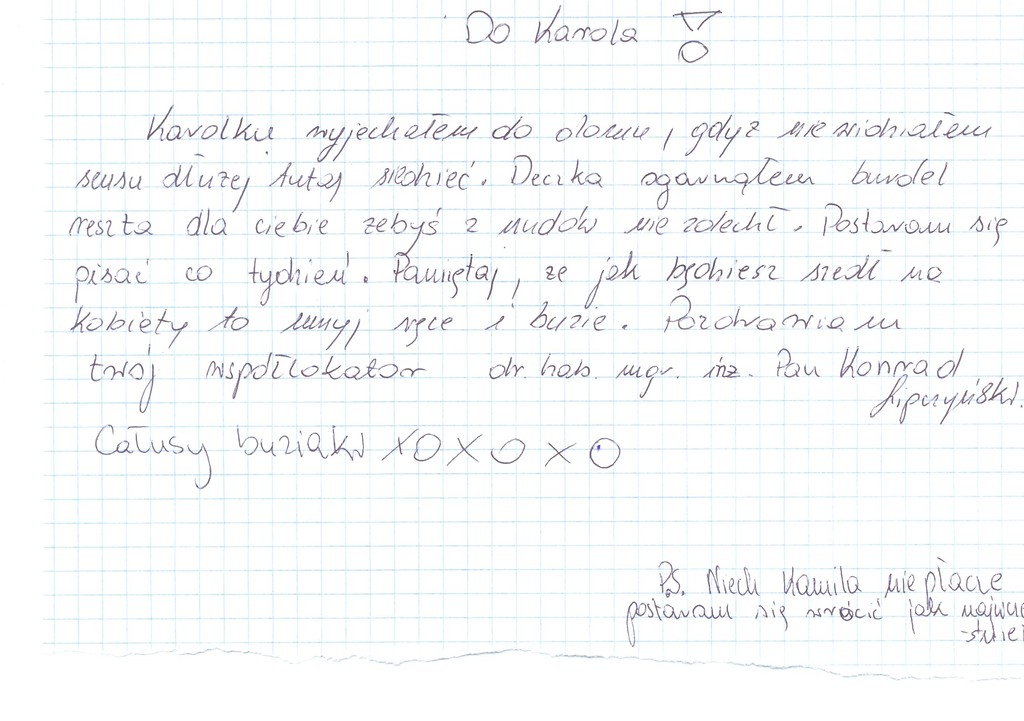 Do Karola !
Karolku wyjechałem do domu, gdyż nie widziałem
sensu dłużej tutaj siedzieć. Deczka ogarnąłem burdel
reszta dla ciebie żebyś z nudów nie zdechł. Postaram się
pisać co tydzień. Pamiętaj, że jak będziesz szedł na
kobiety to umyj ręce i buzie. Pozdrawiam
twój współlokator dr. hab. mgr. inż. Pan Konrad
Lipczyński.
Całusy buziaki XOXOXO
PS. Niech Kamila nie płacze
postaram się wrócić jak najwcze
-śniej